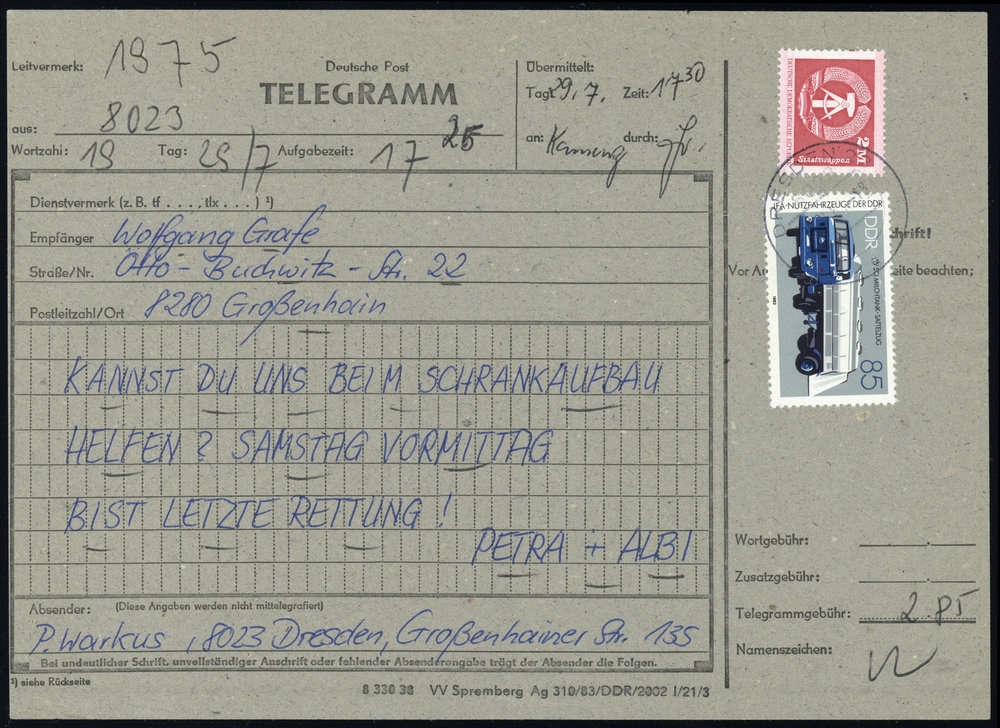 Leitvermerk: 1975
Deutsche Post
TELEGRAMM
aus: 8023
Wortzahl: 19 Tag: 29/7 Aufgabezeit: 17 25
Übermittelt:
Tag: 29. 7. Zeit: 17 30
an: durch:
Dienstvermerk (z. B. tf . . . ., tlx . . . . ) ¹)
Empfänger Wolfgang Grafe
Straße/Nr. Otto - Buchwitz - Str. 22
Postleitzahl/Ort 8280 Großenhain
KANNST DU UNS BEIM SCHRANKAUFBAU
HELFEN ? SAMSTAG VORMITTAG
BIST LETZTE RETTUNG !
PETRA + ALBI
Absender: (Diese Angaben werden nicht mittelegrafiert)
P. Warkus , 8023 Dresden, Großenhainer Str. 135
Bei undeutlicher Schrift, unvollständiger Anschrift oder fehlender Absenderangabe trägt der Absender die Folgen.
¹) siehe Rückseite
8 330 38 VV Spremberg Ag 310/83/DDR/2002 I/21/3
DEUTSCHE DEMOKRATISCHE REPUBLIK
Staatswappen
2 M
DRESDEN
IFA-NUTZFAHRZEUGE DER DDR
DDR
85
chrift!
Vor Au eite beachten;
Wortgebühr:
Zusatzgebühr:
Telegrammgebühr: 2 85
Namenszeichen: